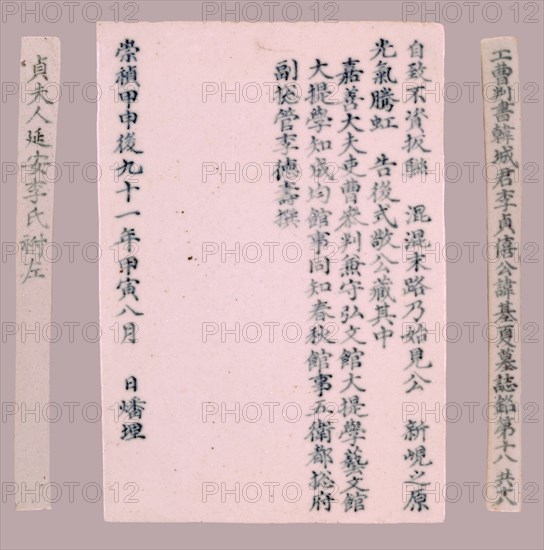 工曹判書韓城君李貞僖公諱基夏墓誌銘第十八 共十八
自致不資扳聯 混混末路乃始見公 新峴之原
光氣騰虹 告後式敬公藏其中
嘉善大夫吏曹參判兼守弘文館大提學藝文館
大提學知成均館事同知春秋館事五衛都摠府
副摠管李德壽撰
崇禎甲申後九十一年甲寅八月 日燔埋
貞夫人延安李氏祔左
PHOTO 12